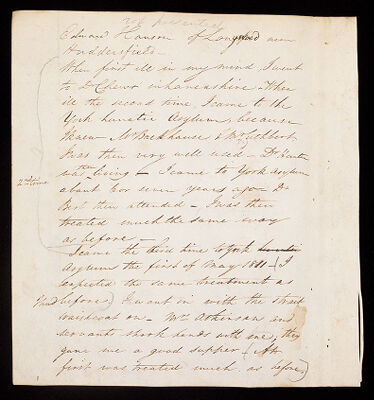 not presented
Edward Hanson of Longwood near
Huddersfield—
When first ill in my mind, I went
to Dr Chew in Lancashire — When
ill the second time, I came to the
York Lunatic Asylum, because
I knew Mr Backhouse & Mr Cuthbert
I was then very well used — Dr Hunter
was then living — I came to York Asylum
2nd time
about 6 or seven years ago — Dr
Best then attended — I was then
treated much the same way
as before —
I came the third time to York Lunatic
Asylum the first of May 1811 — (I
expected the same treatment as
before) I went in with the strait
waistcoat on — Mr Atkinson and
servants shook hands with me, they
gave me a good supper — (At
first was treated much as before)